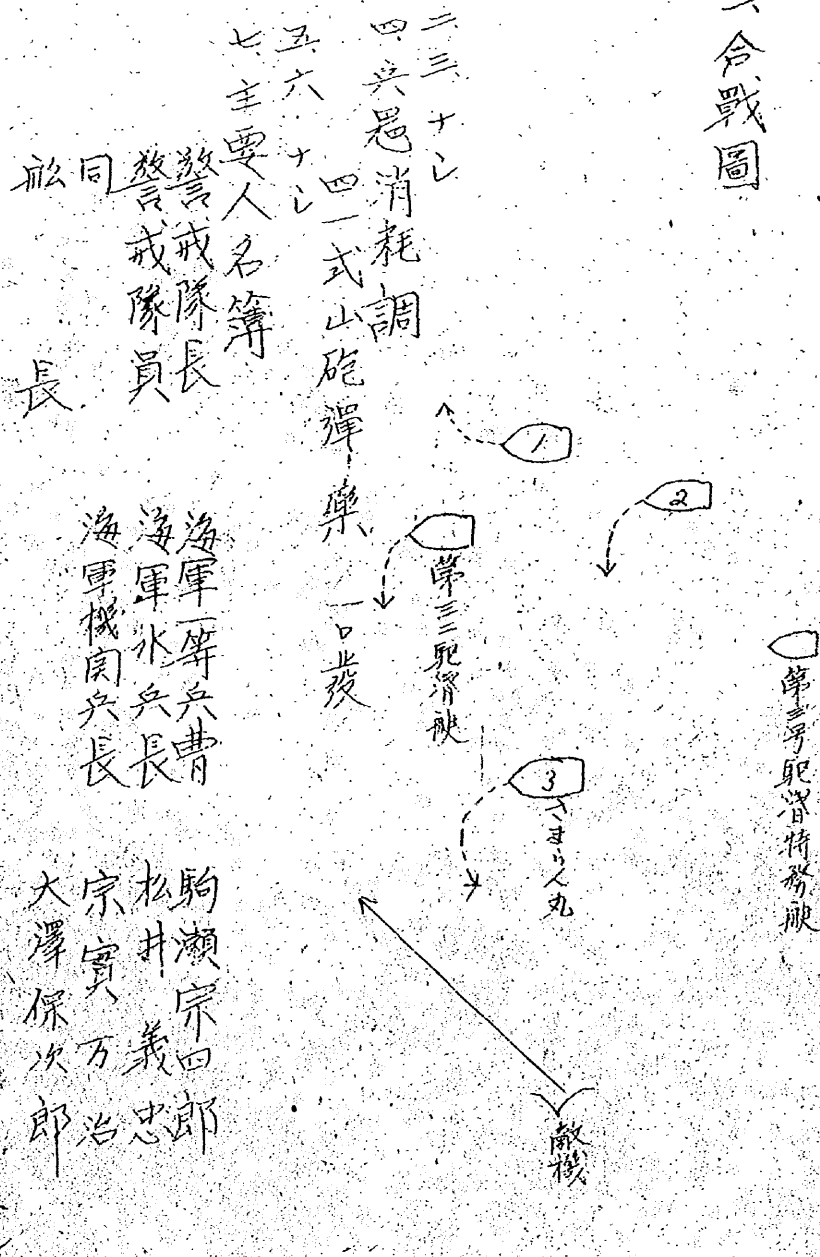 一、合戰圖
1
2
第三二駆潜艇
第三号駆潜特務艇
3
さまらん丸
敵機
二、三、ナシ
四、兵器消耗調
四一式山砲彈藥 一〇発
五、六、ナシ
七、主要人名簿
警戒隊長 海軍一等兵曹 駒瀬宗四郎
警戒隊員 海軍水兵長 松井義忠
同 海軍機関兵長 宗實万治
船長 大澤保次郎